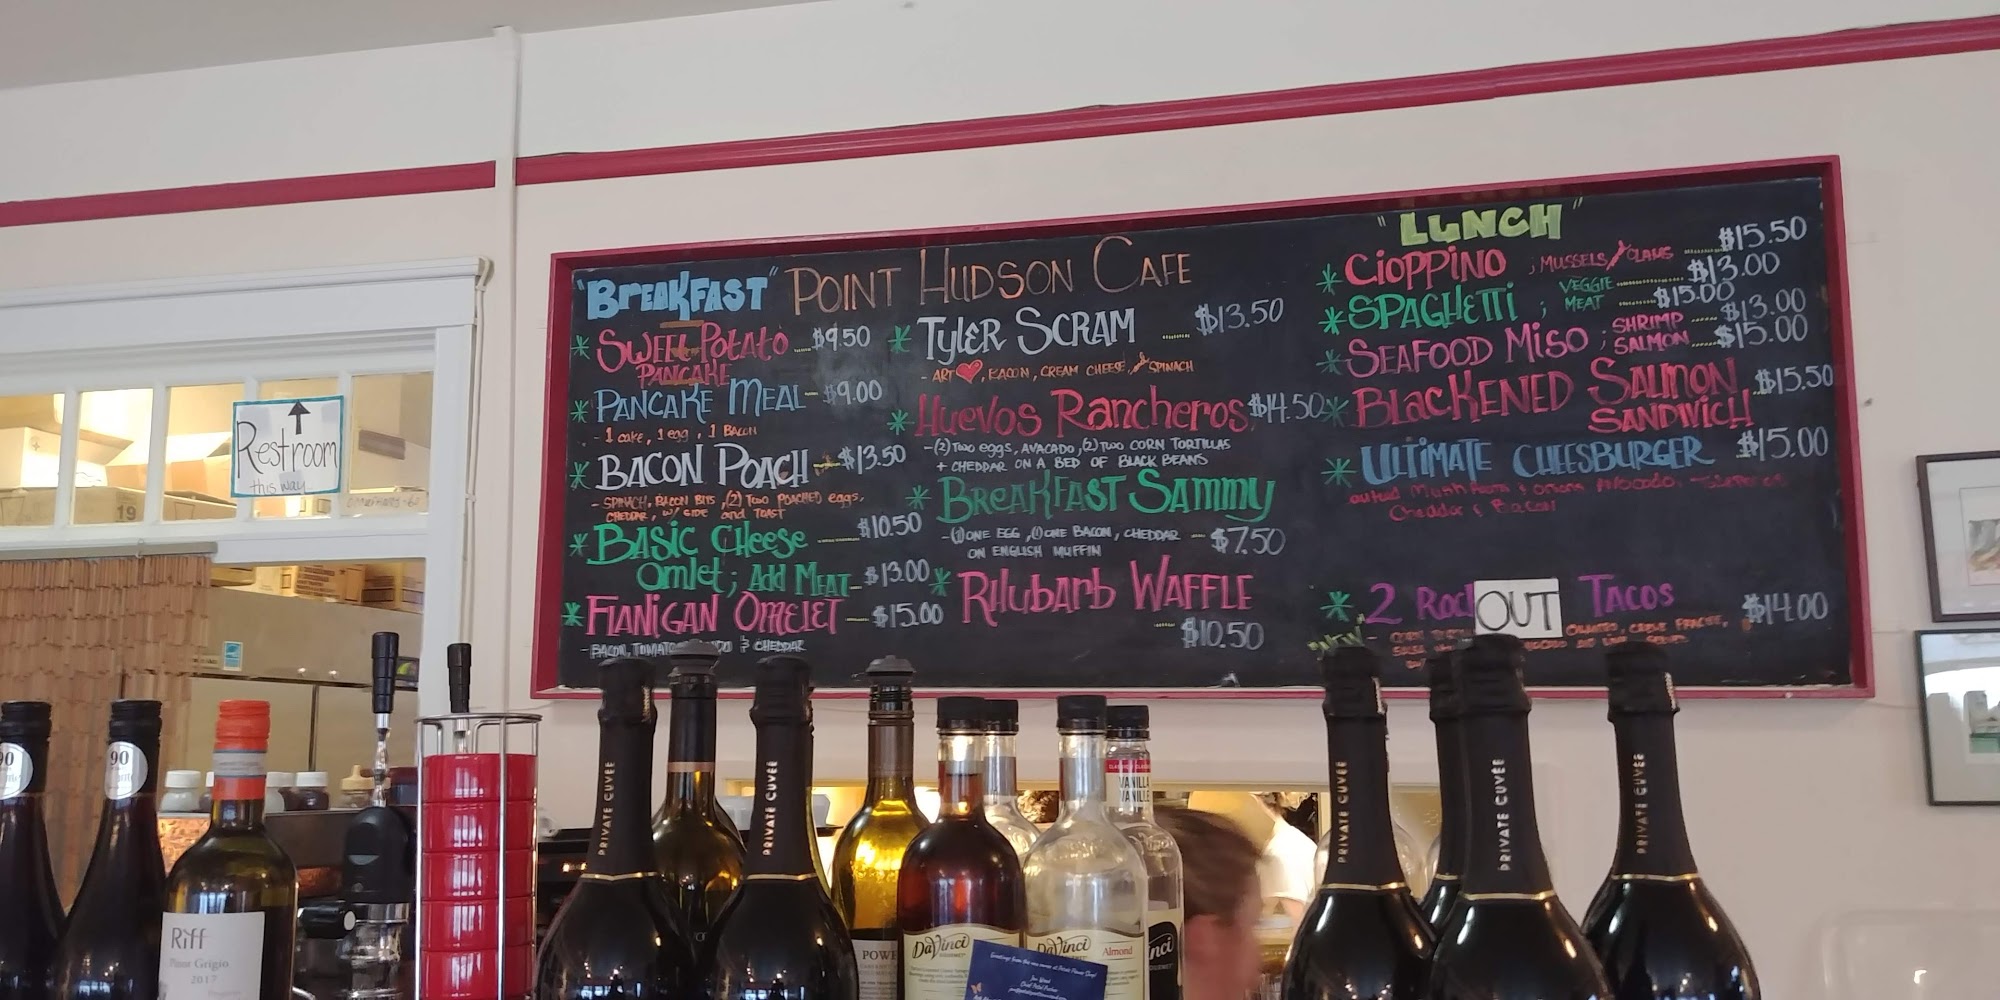 "BREAKFAST"
POINT HUDSON CAFE
* SWEET POTATO $9.50
PANCAKE
* PANCAKE MEAL $9.00
- 1 cake, 1 egg, 1 BACON
* BACON POACH $13.50
- SPINACH, BACON BITS, (2) TWO POACHED eggs,
CHEDDAR, W/ SIDE and TOAST
* BASIC CHEESE $10.50
OMLET; ADD MEAT $13.00
* FLANIGAN OMELET $15.00
- BACON, & CHEDDAR
* TYLER SCRAM $13.50
- ART ♥, BACON, CREAM CHEESE, SPINACH
* HUEVOS RANCHEROS $14.50
- (2) TWO eggs, AVACADO, (2) TWO CORN TORTILLAS
+ CHEDDAR ON A BED OF BLACK BEANS
* BREAKFAST SAMMY
- (1) ONE EGG, (1) ONE BACON, CHEDDAR $7.50
ON ENGLISH MUFFIN
* RHUBARB WAFFLE
$10.50
"LUNCH"
* CIOPPINO ; MUSSELS CLAMS $15.50
* SPAGHETTI ; VEGGIE $13.00
MEAT $15.00
* SEAFOOD MISO ; SHRIMP $13.00
SALMON $15.00
* BLACKENED SALMON $15.50
SANDWICH
* ULTIMATE CHEESBURGER $15.00
MUSHROOM & ONIONS AVOCADO,
Cheddar & Bacon
* 2 TACOS $14.00
OUT
Restroom
this way
19
90
90
Riff
Pinot Grigio
2017
PRIVATE CUVÉE
PRIVATE CUVÉE
PRIVATE CUVÉE
PRIVATE CUVÉE
PRIVATE CUVÉE
DaVinci
GOURMET
DaVinci
Almond
VANILLE